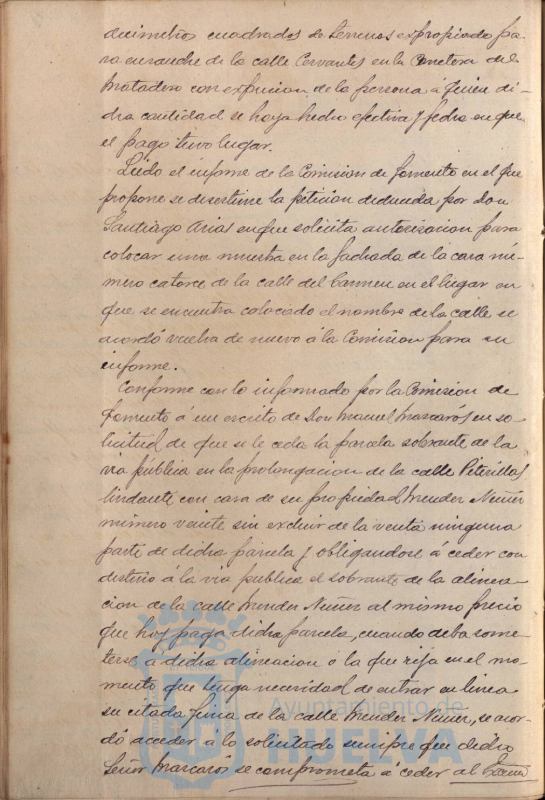 decimetros cuadrados de terrenos expropiado pa-
ra ensanche de la calle Cervantes en la Carretera del
Matadero con expresion de la persona á quien di-
cha cantidad se haya hecho efectiva y fecha en que
el pago tuvo lugar.
Leido el informe de la Comision de fomento en el que
propone se desestime la peticion deducida por Don
Santiago Arias en que solicita autorizacion para
colocar una muestra en la fachada de la casa nú-
mero catorce de la calle del Carmen en el lugar en
que se encuentra colocado el nombre de la calle se
acordó vuelva de nuevo á la Comision para su
informe.
Conforme con lo informado por la Comision de
fomento á un escrito de Don Manuel Mascarós en so-
licitud de que se le ceda la parcela sobrante de la
via pública en la prolongacion de la calle
lindante con casa de su propiedad Mendez Nuñez
número veinte sin excluir de la venta ninguna
parte de dicha parcela y obligandose á ceder con
destino á la via publica el sobrante de la alinea-
cion de la calle Mendez Nuñez al mismo precio
que hoy paga dicha parcela, cuando deba some-
terse á dicha alineacion ó la que rija en el mo-
mento que tenga necesidad de entrar en linea
su citada finca de la calle Mendez Nuñez, se acor-
dó acceder á lo solicitado siempre que dicho
Señor Mascarós se comprometa á ceder al
Ayuntamiento de
HUELVA